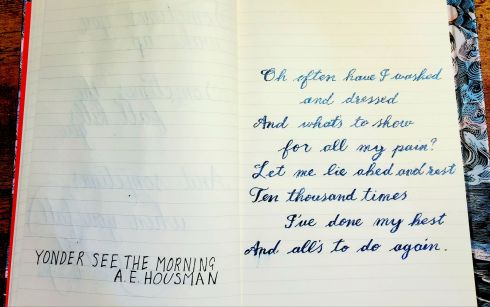 YONDER SEE THE MORNING
A.E. HOUSMAN
Oh often have I washed
and dressed
And what's to show
for all my pain?
Let me lie abed and rest
Ten thousand times
I've done my best
And all's to do again.